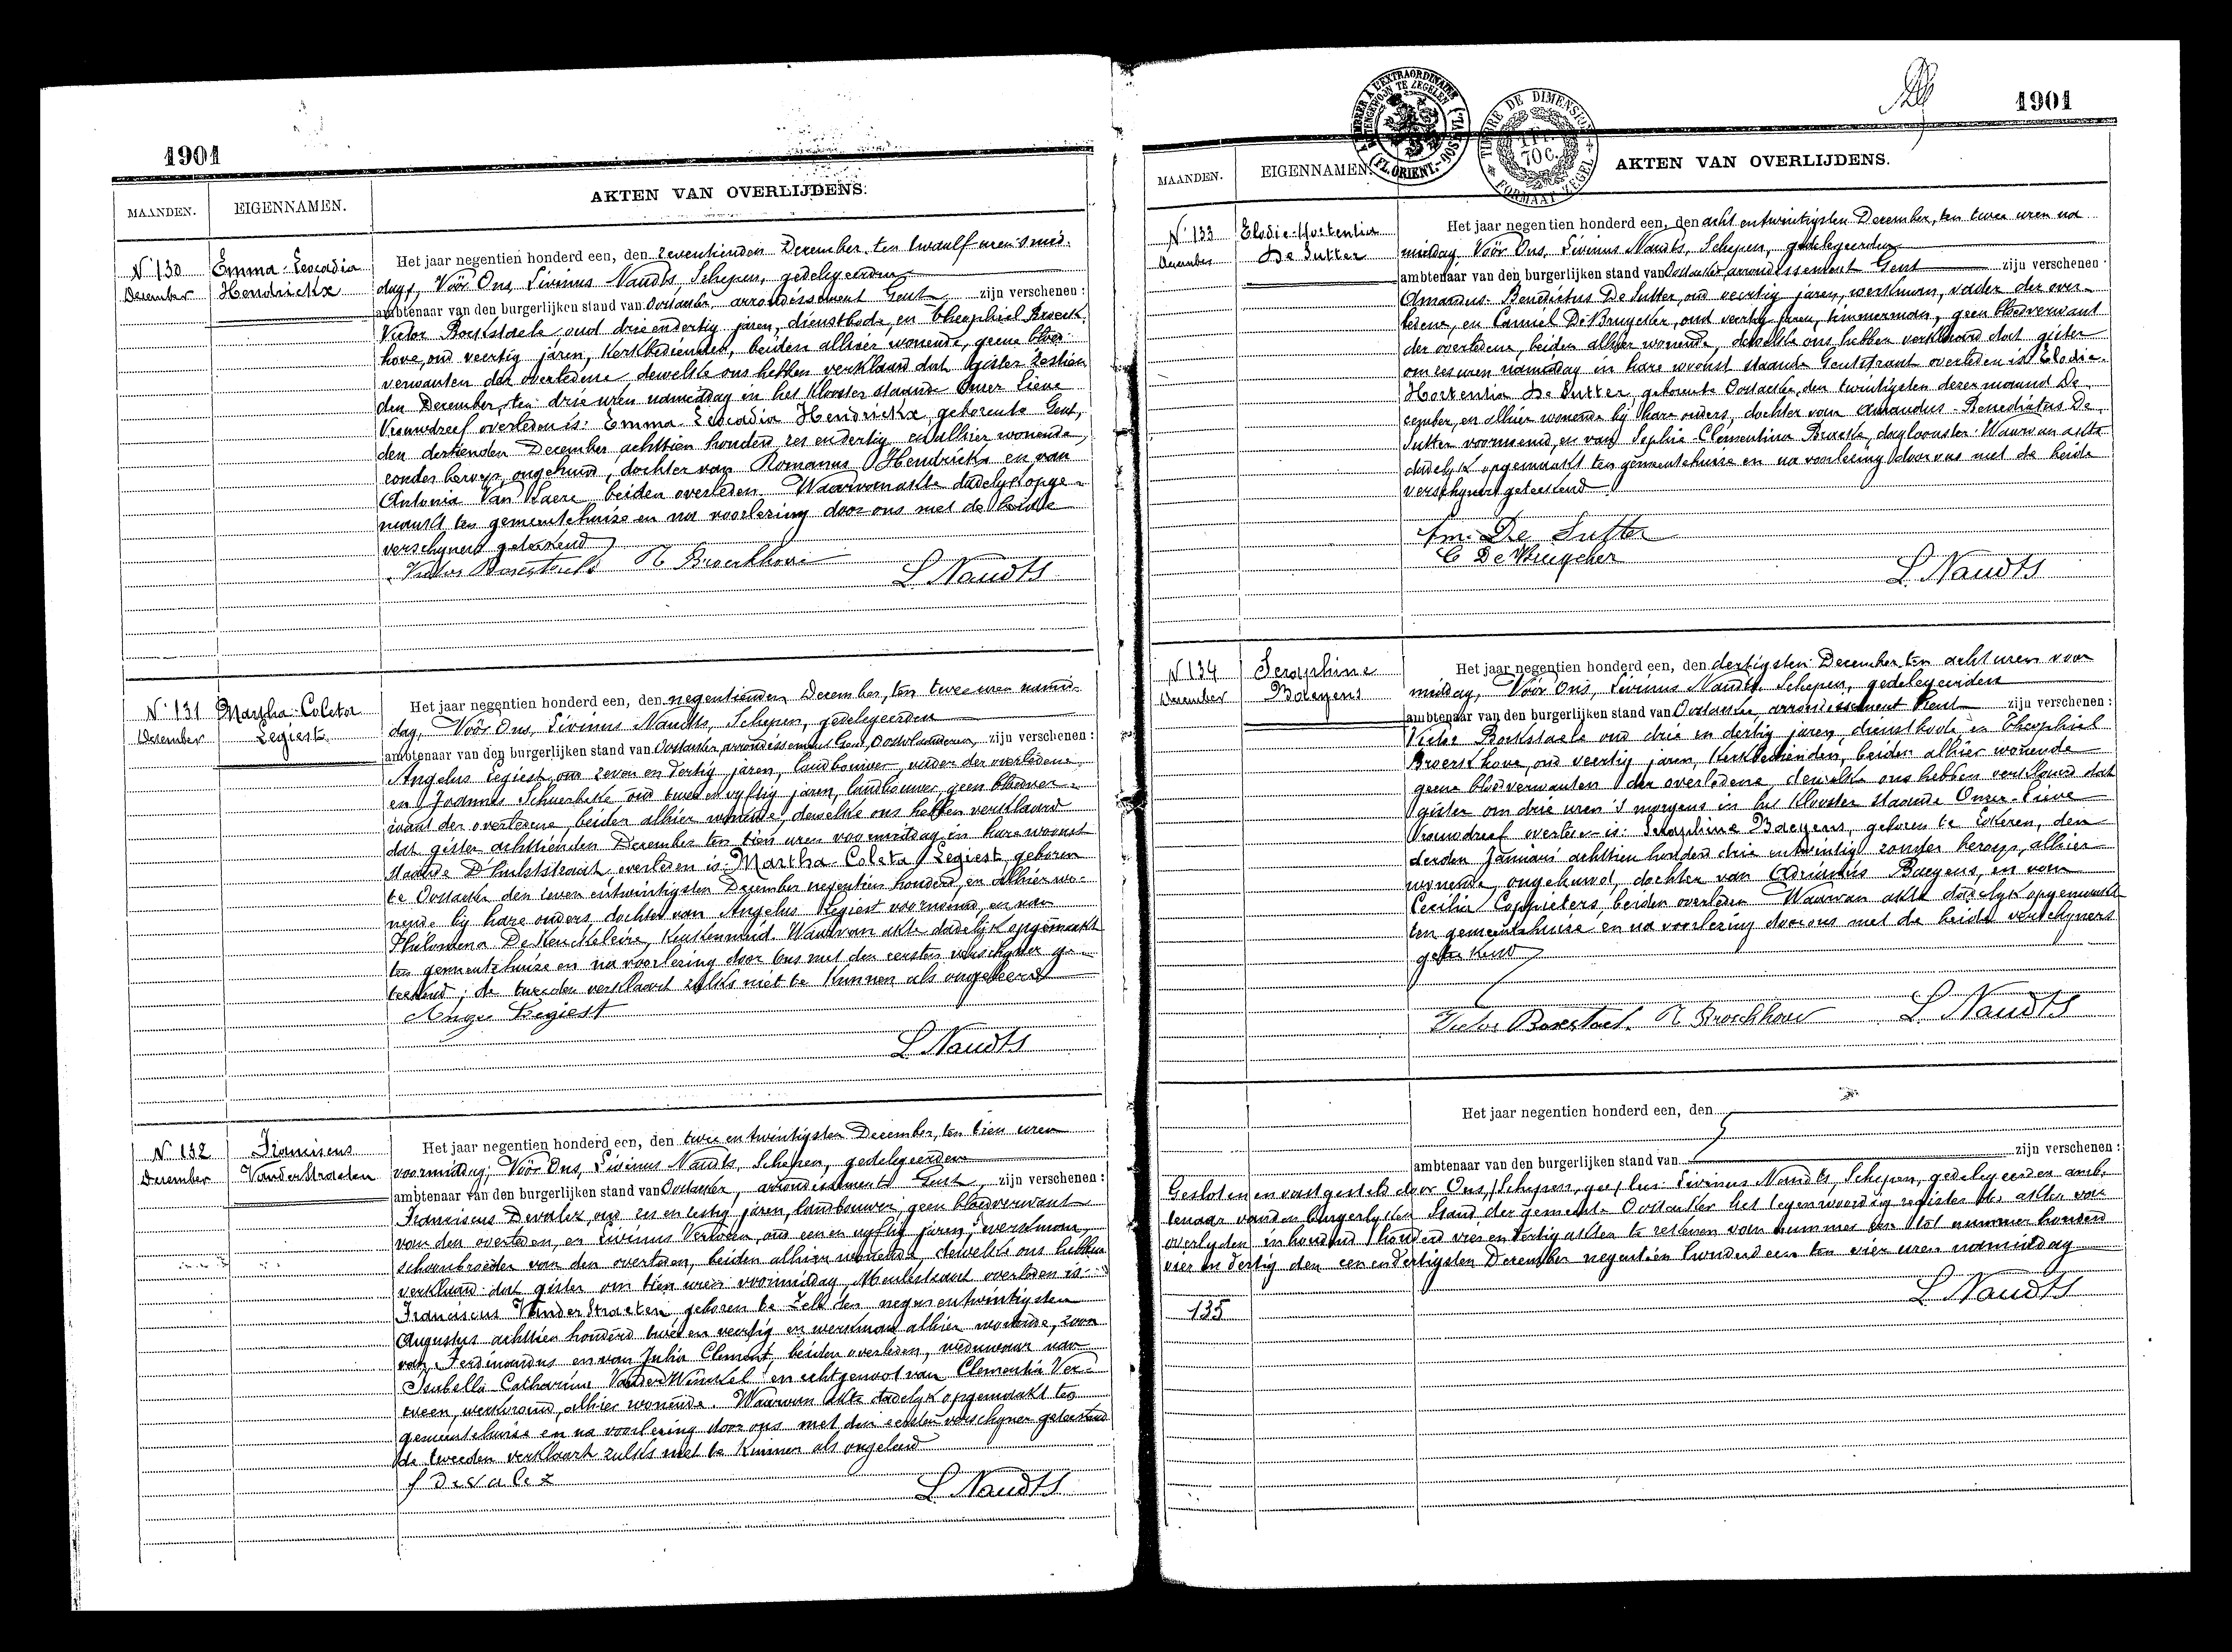 1901
AKTEN VAN OVERLIJDENS.
MAANDEN.
EIGENNAMEN.
N° 130
December
Emma-Leocadia
Hendrickx
Het jaar negentien honderd een, den zeventienden December, ten twaalf uren 's mid-
dags, Vóór Ons, Livinus Naudts, Schepen, gedelegeerden
ambtenaar van den burgerlijken stand van Oostacker arrondissement Gent zijn verschenen :
Victor Boekstaele oud drie en dertig jaren, dienstbode, en Theophiel Broeck-
hove, oud veertig jaren, Kerkbedienden, beiden alhier wonende, geene bloed-
verwanten der overledene, dewelke ons hebben verklaard dat gister zestien
den December, ten drie uren namiddag in het Klooster staande Onzer Lieve
Vrouwdreef overleden is: Emma-Leocadia Hendrickx, geboren te Gent,
den dertienden December achttien honderd zes en dertig en alhier wonende,
zonder beroep, ongehuwd, dochter van Romanus Hendrickx en van
Antonia Van Laere beiden overleden Waarvan akte dadelijk opge-
maakt ten gemeentehuize en na voorlezing door ons met de beide
verschijners geteekend
Victor Boekstaele T. Broeckhove
L. Naudts
N° 131
December
Martha-Coleta
Legiest
Het jaar negentien honderd een, den negentienden December, ten twee uren namid-
dag, Vóór Ons, Livinus Naudts, Schepen, gedelegeerden
ambtenaar van den burgerlijken stand van Oostacker, arrondissement Gent, Oostvlaanderen, zijn verschenen :
Angelus Legiest, oud zeven en dertig jaren, landbouwer, vader der overledene
en Joannes Scheerlinke oud twee en vyftig jaren, landbouwer, geen bloedver-
want der overledene, beiden alhier wonende, dewelke ons hebben verklaard
dat gister achttienden December ten tien uren voormiddag in hare woonst
staande Dhulststraat overleden is: Martha-Coleta Legiest, geboren
te Oostacker den zeven en twintigsten December negentien honderd, en alhier wo-
nende by hare ouders, dochter van Angelus Legiest voornoemd, en van
Philomena De Keuckeleire, Keukenmeid. Waarvan akte dadelijk opgemaakt
ten gemeentehuize en na voorlezing door ons met den eersten verschyner ge-
teekend; de tweeden verklaard zulks niet te kunnen als ongeleerd
Ange Legiest
L. Naudts
N° 132
December
Franciscus
Vanderstraeten
Het jaar negentien honderd een, den twee en twintigsten December, ten tien uren
voormiddag, Vóór Ons, Livinus Naudts, Schepen, gedelegeerden
ambtenaar van den burgerlijken stand van Oostacker, arrondissement Gent, zijn verschenen :
Franciscus Devalez oud zes en zestig jaren, landbouwer, geen bloedverwant
van den overleden, en Livinus Verween, oud een en vyftig jaren, werkman,
schoonbroeder van den overleden, beiden alhier wonende dewelke ons hebben
verklaard dat gister om tien uren voormiddag, Meulestraat overleden is
Franciscus Vanderstraeten geboren te Zele den negen en twintigsten
Augustus achttien honderd twee en veertig en werkman alhier wonende, zoon
van Ferdinandus en van Julia Clement, beiden overleden, weduwaar van
Isabella Catharina Vander Winckel en echtgenoot van Clementia Ver-
ween, werkvrouw, alhier wonende. Waarvan akte dadelyk opgemaakt ten
gemeentehuize en na voorlezing door ons met den eersten verschyner geteekend
de tweeden verklaard zulks niet te kunnen als ongeleerd
f Devalez
L. Naudts
1901
TIMBRE DE DIMENSION
1 Fr. 70 C.
FORMAAT ZEGEL
AKTEN VAN OVERLIJDENS.
MAANDEN.
EIGENNAMEN.
N° 133
December
Elodie-Hortentia
De Sutter
Het jaar negentien honderd een, den acht en twintigsten December, ten twee uren na
middag Vóór Ons, Livinus Naudts, Schepen, gedelegeerden
ambtenaar van den burgerlijken stand van Oostacker arrondissement Gent zijn verschenen :
Amandus-Benedictus De Sutter, oud veertig jaren, werkman, vader der over-
ledene, en Camiel De Bruycker, oud veertig jaren, timmerman, geen bloedverwant
der overledene, beiden alhier wonende, dewelke ons hebben verklaard dat gister
om zes uren namiddag in hare woonst staande Gentstraat overleden is Elodie-
Hortentia De Sutter, geboren te Oostacker den twintigsten dezer maand De-
cember, en alhier wonende by hare ouders, dochter van Amandus-Benedictus De
Sutter voornoemd, en van Sophie Clementina Braeck, dagloonster. Waarvan akte
dadelyk opgemaakt ten gemeentehuize en na voorlezing door ons met de beide
verschyners geteekend
Am. De Sutter
C De Bruycker
L. Naudts
N° 134
December
Seraphine
Baeyens
Het jaar negentien honderd een, den dertigsten December, ten acht uren voor
middag, Vóór Ons, Livinus Naudts, Schepen, gedelegeerden
ambtenaar van den burgerlijken stand van Oostacker arrondissement Gent zijn verschenen :
Victor Boekstaele oud drie en dertig jaren dienstbode en Theophiel
Broeckhove, oud veertig jaren, Kerkbedienden, beiden alhier wonende
geene bloedverwanten der overledene dewelke ons hebben verklaard dat
gister om drie uren 's morgens in het Klooster staande Onzer-Lieve
Vrouwdreef overleden is: Seraphine Baeyens, geboren te Eekeren, den
derden Januari achttien honderd drie en twintig zonder beroep, alhier
wonende, ongehuwd, dochter van Adrianus Baeyens, en van
Cecilia Coppieters beiden overleden Waarvan akte dadelyk opgemaakt
ten gemeentehuize en na voorlezing door ons met de beide verschyners
geteekend
Victor Boekstaele T. Broeckhove L. Naudts
Het jaar negentien honderd een, den
zijn verschenen :
ambtenaar van den burgerlijken stand van
Gesloten en vastgesteld door Ons, Livinus Naudts, Schepen, gedelegeerden amb-
tenaar van den burgerlyken Stand der gemeente Oostacker het tegenwoordig register der akten van
overlyden inhoudend honderd vier en dertig akten te rekenen van nummer een tot nummer honderd
vier en dertig den een en dertigsten December negentien honderd een ten vier uren namiddag
L. Naudts
135